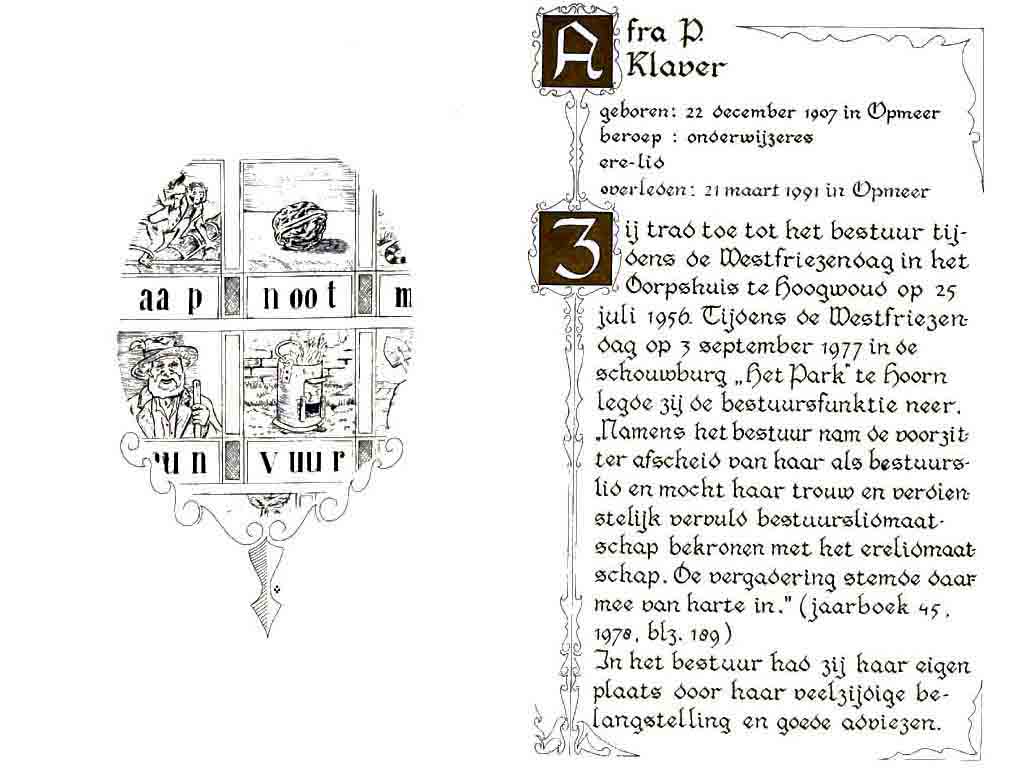 aap noot m
un vuur
Afra P.
Klaver
geboren: 22 december 1907 in Opmeer
beroep : onderwijzeres
ere-lid
overleden: 21 maart 1991 in Opmeer
Zij trad toe tot het bestuur tij-
dens de Westfriezendag in het
Dorpshuis te Hoogwoud op 25
juli 1956. Tijdens de Westfriezen-
dag op 3 september 1977 in de
schouwburg „Het Park” te Hoorn
legde zij de bestuursfunktie neer.
„Namens het bestuur nam de voorzit-
ter afscheid van haar als bestuurs-
lid en mocht haar trouw en verdien-
stelijk vervuld bestuurslidmaat-
schap bekronen met het erelidmaat-
schap. De vergadering stemde daar-
mee van harte in." (jaarboek 45,
1978, blz. 189)
In het bestuur had zij haar eigen
plaats door haar veelzijdige be-
langstelling en goede adviezen.